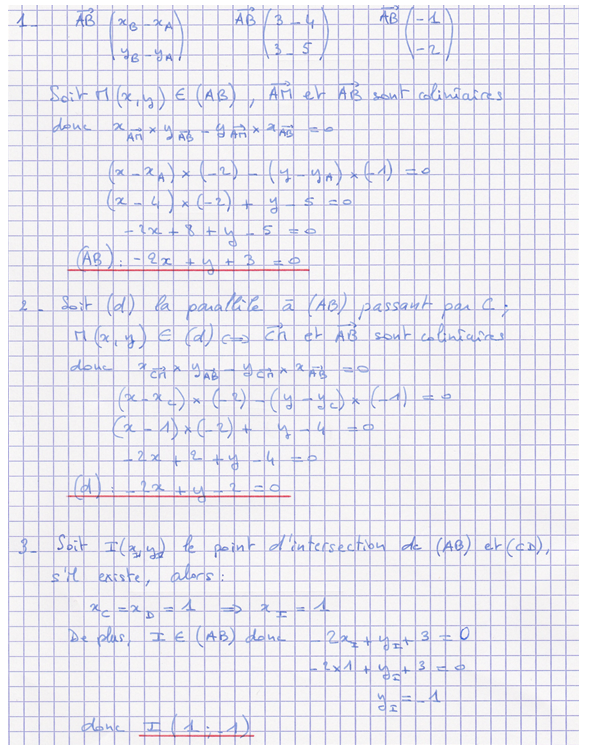 1_ AB⃗ (x_B - x_A / y_B - y_A) AB⃗ (3 - 4 / 3 - 5) AB⃗ (-1 / -2)
Soit M(x,y) ∈ (AB), AM⃗ et AB⃗ sont colinéaires
donc x_AM⃗ × y_AB⃗ - y_AM⃗ × x_AB⃗ = 0
(x - x_A) × (-2) - (y - y_A) × (-1) = 0
(x - 4) × (-2) + y - 5 = 0
-2x + 8 + y - 5 = 0
(AB) : -2x + y + 3 = 0
2_ Soit (d) la parallèle à (AB) passant par C ;
M(x,y) ∈ (d) ⟺ CM⃗ et AB⃗ sont colinéaires
donc x_CM⃗ × y_AB⃗ - y_CM⃗ × x_AB⃗ = 0
(x - x_C) × (-2) - (y - y_C) × (-1) = 0
(x - 1) × (-2) + y - 4 = 0
-2x + 2 + y - 4 = 0
(d) : -2x + y - 2 = 0
3_ Soit I(x_I, y_I) le point d'intersection de (AB) et (CD),
s'il existe, alors :
x_C = x_D = 1 ⟹ x_I = 1
De plus, I ∈ (AB) donc -2x_I + y_I + 3 = 0
-2×1 + y_I + 3 = 0
y_I = -1
donc I (1 ; -1)